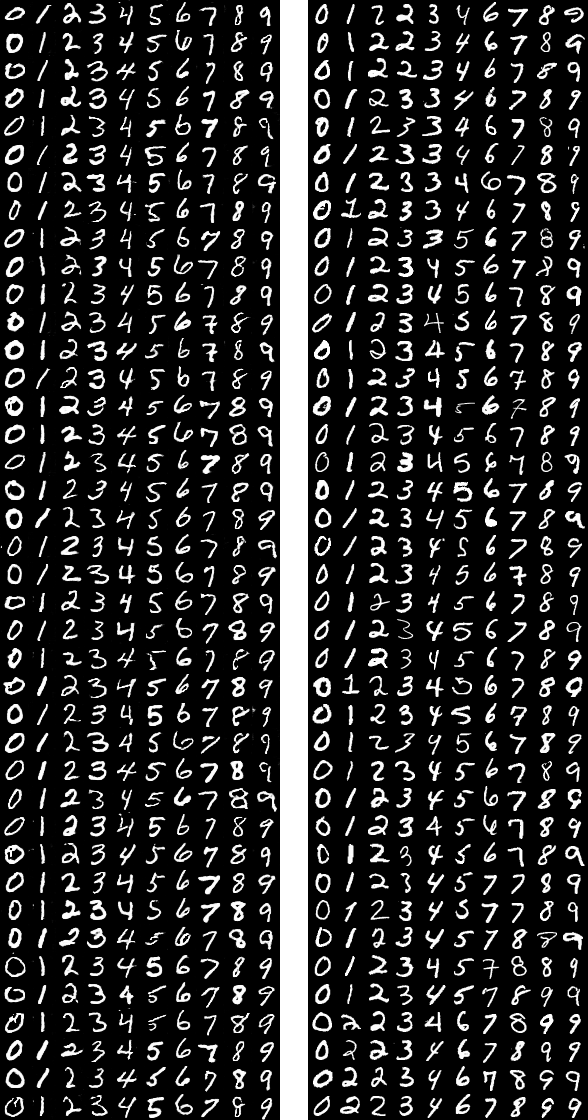 0 1 2 3 4 5 6 7 8 9 0 1 2 2 3 4 6 7 8 9
0 1 2 3 4 5 6 7 8 9 0 1 2 2 3 4 6 7 8 9
0 1 2 3 4 5 6 7 8 9 0 1 2 2 3 4 6 7 8 9
0 1 2 3 4 5 6 7 8 9 0 1 2 3 3 4 6 7 8 9
0 1 2 3 4 5 6 7 8 9 0 1 2 3 3 4 6 7 8 9
0 1 2 3 4 5 6 7 8 9 0 1 2 3 3 4 6 7 8 9
0 1 2 3 4 5 6 7 8 9 0 1 2 3 3 4 6 7 8 9
0 1 2 3 4 5 6 7 8 9 0 1 2 3 3 4 6 7 8 9
0 1 2 3 4 5 6 7 8 9 0 1 2 3 3 5 6 7 8 9
0 1 2 3 4 5 6 7 8 9 0 1 2 3 4 5 6 7 8 9
0 1 2 3 4 5 6 7 8 9 0 1 2 3 4 5 6 7 8 9
0 1 2 3 4 5 6 7 8 9 0 1 2 3 4 5 6 7 8 9
0 1 2 3 4 5 6 7 8 9 0 1 2 3 4 5 6 7 8 9
0 1 2 3 4 5 6 7 8 9 0 1 2 3 4 5 6 7 8 9
0 1 2 3 4 5 6 7 8 9 0 1 2 3 4 5 6 7 8 9
0 1 2 3 4 5 6 7 8 9 0 1 2 3 4 5 6 7 8 9
0 1 2 3 4 5 6 7 8 9 0 1 2 3 4 5 6 7 8 9
0 1 2 3 4 5 6 7 8 9 0 1 2 3 4 5 6 7 8 9
0 1 2 3 4 5 6 7 8 9 0 1 2 3 4 5 6 7 8 9
0 1 2 3 4 5 6 7 8 9 0 1 2 3 4 5 6 7 8 9
0 1 2 3 4 5 6 7 8 9 0 1 2 3 4 5 6 7 8 9
0 1 2 3 4 5 6 7 8 9 0 1 2 3 4 5 6 7 8 9
0 1 2 3 4 5 6 7 8 9 0 1 2 3 4 5 6 7 8 9
0 1 2 3 4 5 6 7 8 9 0 1 2 3 4 5 6 7 8 9
0 1 2 3 4 5 6 7 8 9 0 1 2 3 4 5 6 7 8 9
0 1 2 3 4 5 6 7 8 9 0 1 2 3 4 5 6 7 8 9
0 1 2 3 4 5 6 7 8 9 0 1 2 3 4 5 6 7 8 9
0 1 2 3 4 5 6 7 8 9 0 1 2 3 4 5 6 7 8 9
0 1 2 3 4 5 6 7 8 9 0 1 2 3 4 5 6 7 8 9
0 1 2 3 4 5 6 7 8 9 0 1 2 3 4 5 6 7 8 9
0 1 2 3 4 5 6 7 8 9 0 1 2 3 4 5 6 7 8 9
0 1 2 3 4 5 6 7 8 9 0 1 2 3 4 5 7 7 8 9
0 1 2 3 4 5 6 7 8 9 0 1 2 3 4 5 7 7 8 9
0 1 2 3 4 5 6 7 8 9 0 1 2 3 4 5 7 8 8 9
0 1 2 3 4 5 6 7 8 9 0 1 2 3 4 5 7 8 8 9
0 1 2 3 4 5 6 7 8 9 0 1 2 3 4 5 7 8 9 9
0 1 2 3 4 5 6 7 8 9 0 2 2 3 4 6 7 8 9 9
0 1 2 3 4 5 6 7 8 9 0 2 2 3 4 6 7 8 9 9
0 1 2 3 4 5 6 7 8 9 0 2 2 3 4 6 7 8 9 9
0 1 2 3 4 5 6 7 8 9 0 2 2 3 4 6 7 8 9 9